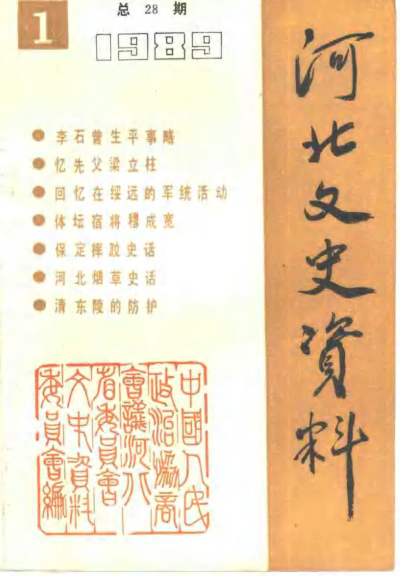 1
总 28 期
1989
河北文史資料
李石曾生平事略
忆先父梁立柱
回忆在绥远的军统活动
体坛宿将穆成宽
保定摔跤史话
河北烟草史话
清东陵的防护
中國人民
政治協商
會議河北
省委員會
文史資料
委員會編